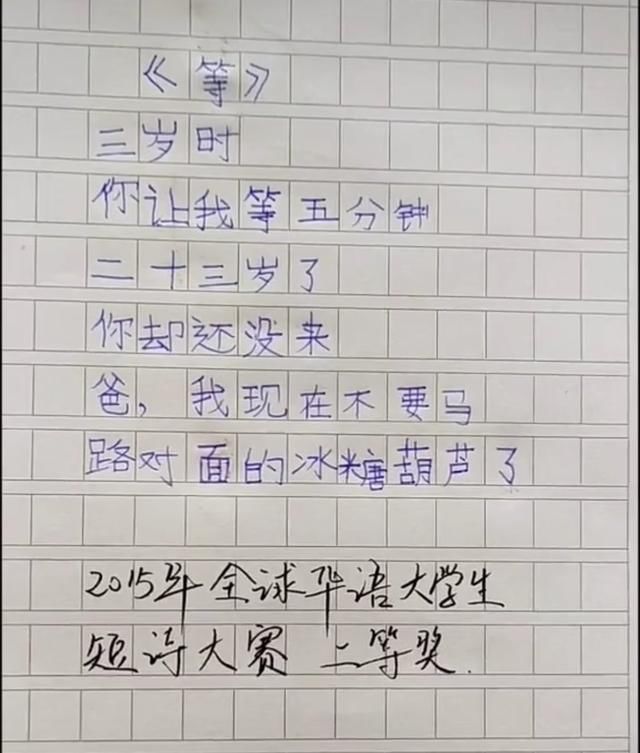 《等》
三岁时
你让我等五分钟
二十三岁了
你却还没来
爸，我现在不要马
路对面的冰糖葫芦了
2015年全球华语大学生
短诗大赛 二等奖.